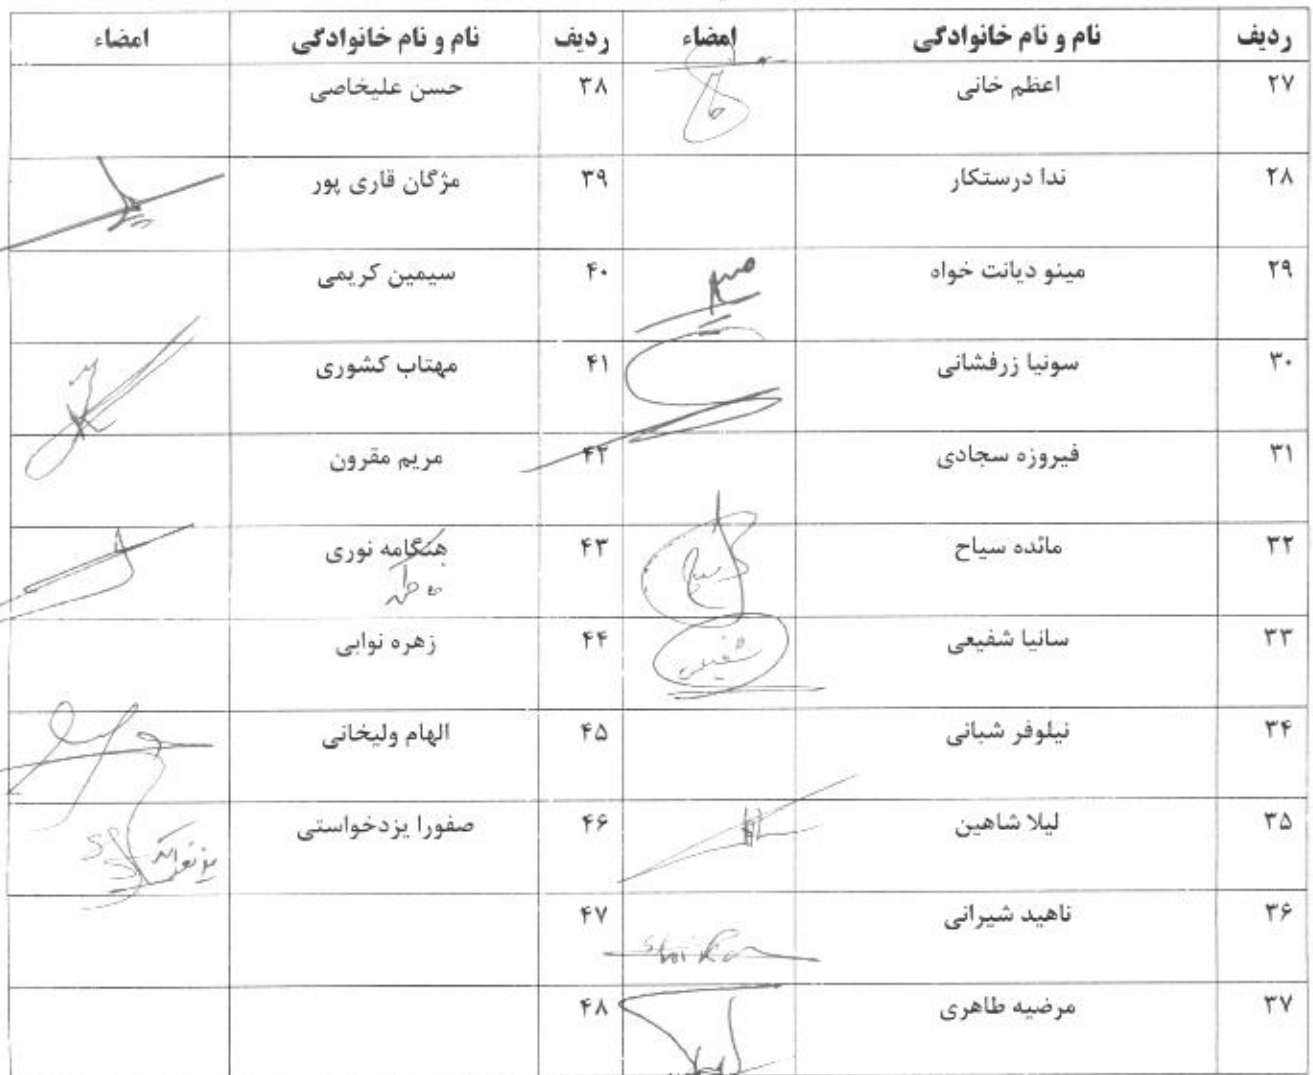 ردیف نام و نام خانوادگی امضاء ردیف نام و نام خانوادگی امضاء
۲۷ اعظم خانی ۳۸ حسن علیخاصی
۲۸ ندا درستکار ۳۹ مژگان قاری پور
۲۹ مینو دیانت خواه ۴۰ سیمین کریمی
۳۰ سونیا زرفشانی ۴۱ مهتاب کشوری
۳۱ فیروزه سجادی ۴۲ مریم مقرون
۳۲ مائده سیاح ۴۳ هنگامه نوری
۳۳ سانیا شفیعی شفیعی ۴۴ زهره نوابی
۳۴ نیلوفر شبانی ۴۵ الهام ولیخانی
۳۵ لیلا شاهین ۴۶ صفورا یزدخواستی
۳۶ ناهید شیرانی ۴۷
۳۷ مرضیه طاهری ۴۸